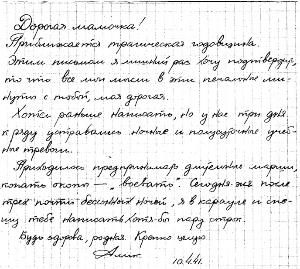 Дорогая мамочка!
Приближается трагическая годовщина.
Этим письмом я лишний раз хочу подтвердить,
то что все мои мысли в эти печальные ми-
нуты с тобой, моя дорогая.
Хотел раньше написать, но у нас три дня
к ряду устраивались ночные и полусуточные учеб-
ные тревоги.
Приходилось предпринимать длительные марши,
копать окопы — „воевать". Сегодня-же после
трех почти бессонных ночей, я в карауле и спе-
шу тебе написать хотя-бы пару строк.
Будь здорова, родная. Крепко целую
Алик.
10.4.41.